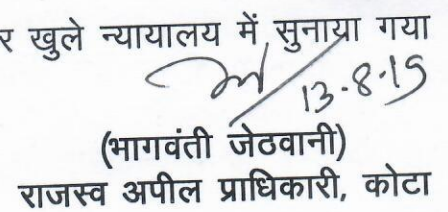 र खुले न्यायालय में सुनाया गया
13-8-19
(भागवंती जेठवानी)
राजस्व अपील प्राधिकारी, कोटा